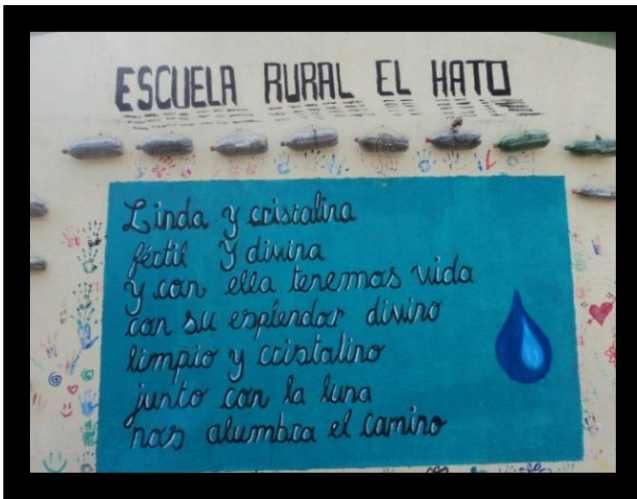 ESCUELA RURAL EL HATO
Linda y cristalina
fértil y divina
y con ella tenemos vida
con su esplendor divino
limpio y cristalino
junto con la luna
nos alumbra el camino